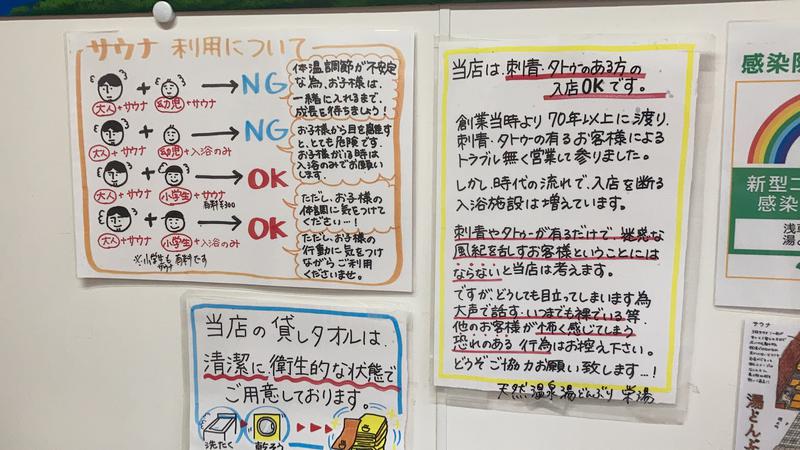 サウナ 利用について
大人+サウナ
幼児+サウナ
NG
体温調節が不安定
な為、お子様は、
一緒に入れるまで、
成長を待ちましょう!
大人+サウナ
幼児+入浴のみ
NG
お子様から目を離すと、とても危険です。
お子様がいる時は
入浴のみでお願いします。
大人+サウナ
小学生+サウナ
有料¥300
OK
ただし、お子様の
体調に気をつけて
ください…!
大人+サウナ
小学生+入浴のみ
OK
ただし、お子様の
行動に気をつけ
ながらご利用
くださいませ。
※小学生も
サウナ
有料です
当店は、刺青・タトゥーのある方の
入店OKです。
創業当時より70年以上に渡り、
刺青・タトゥーの有るお客様による
トラブル無く営業して参りました。
しかし、時代の流れで、入店を断る
入浴施設は増えています。
刺青やタトゥーが有るだけで、迷惑な
風紀を乱すお客様ということには
ならないと当店は考えます。
ですが、どうしても目立ってしまいます為
大声で話す・いつまでも裸でいる等、
他のお客様が怖く感じてしまう
恐れのある行為はお控え下さい。
どうぞご協力お願い致します…!
天然温泉湯どんぶり栄湯
当店の貸しタオルは、
清潔に、衛生的な状態で
ご用意しております。
洗たく
乾そう
感染防
新型コ
感染
浅草
湯ど
サウナ
湯どんぶ